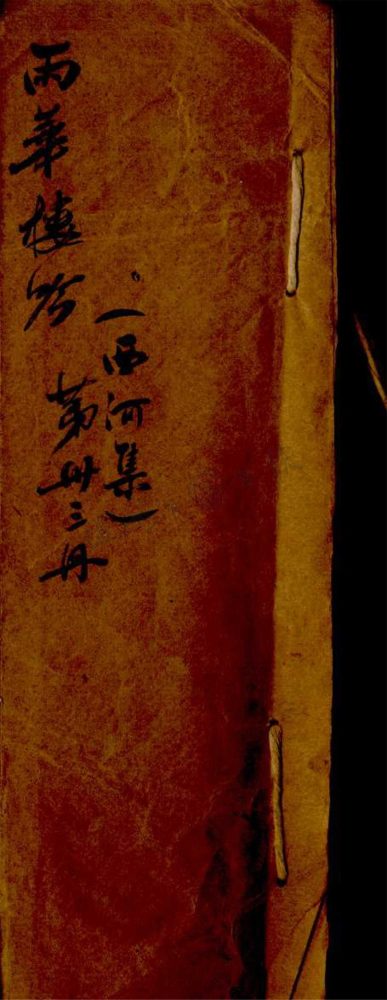 雨華樓吟
（西河集）
第卅三册